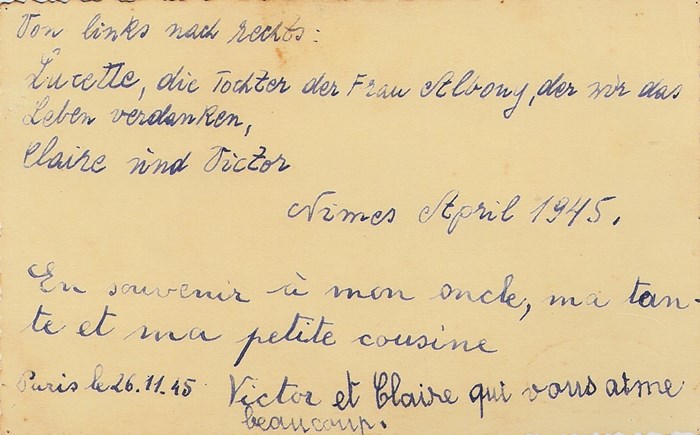 Von links nach rechts:
Lucette, die Tochter der Frau Albouy, der wir das
Leben verdanken,
Claire und Victor
Nîmes April 1945.
En souvenir à mon oncle, ma tan-
te et ma petite cousine
Paris le 26.11.45 Victor et Claire qui vous aime
beaucoup.